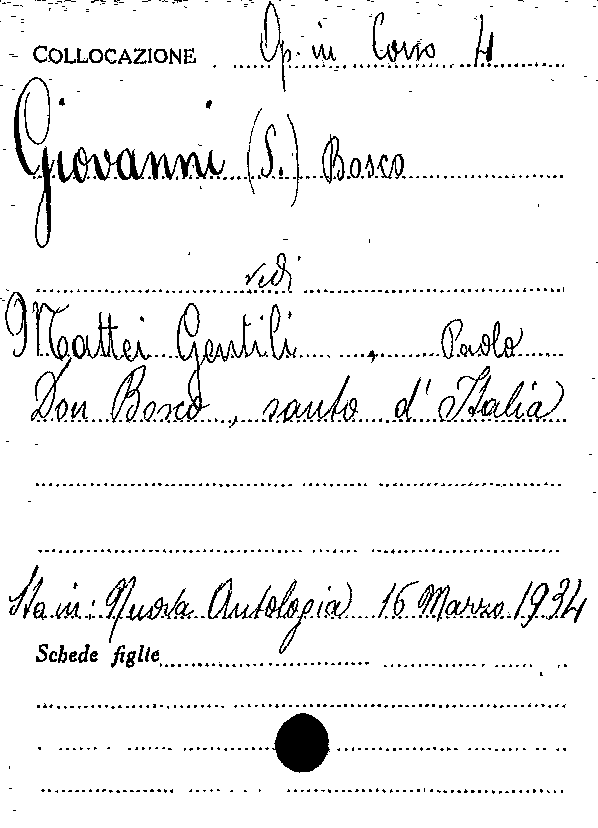 COLLOCAZIONE Op. in Corso 4
Giovanni (S.) Bosco
vedi
Mattei Gentili , Paolo
Don Bosco, santo d'Italia
Sta in: Nuova Antologia 16 Marzo 1934
Schede figlie